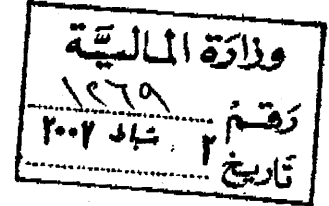 وزارة المالية
رقم ١٢٦٩
تاريخ ٢ شباط ٢٠٠٢